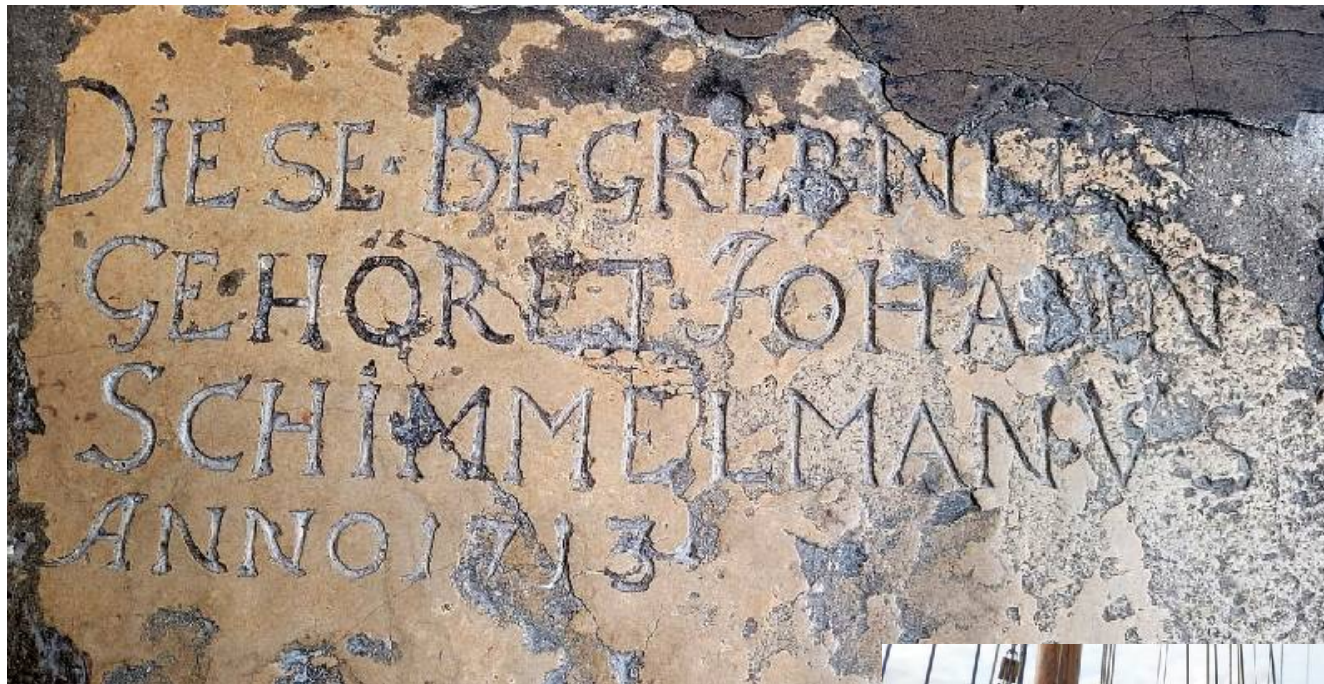 DIESE · BEGREBNI
GEHÖRET · JOHANEN
SCHIMMELMANVS
ANNO 1713